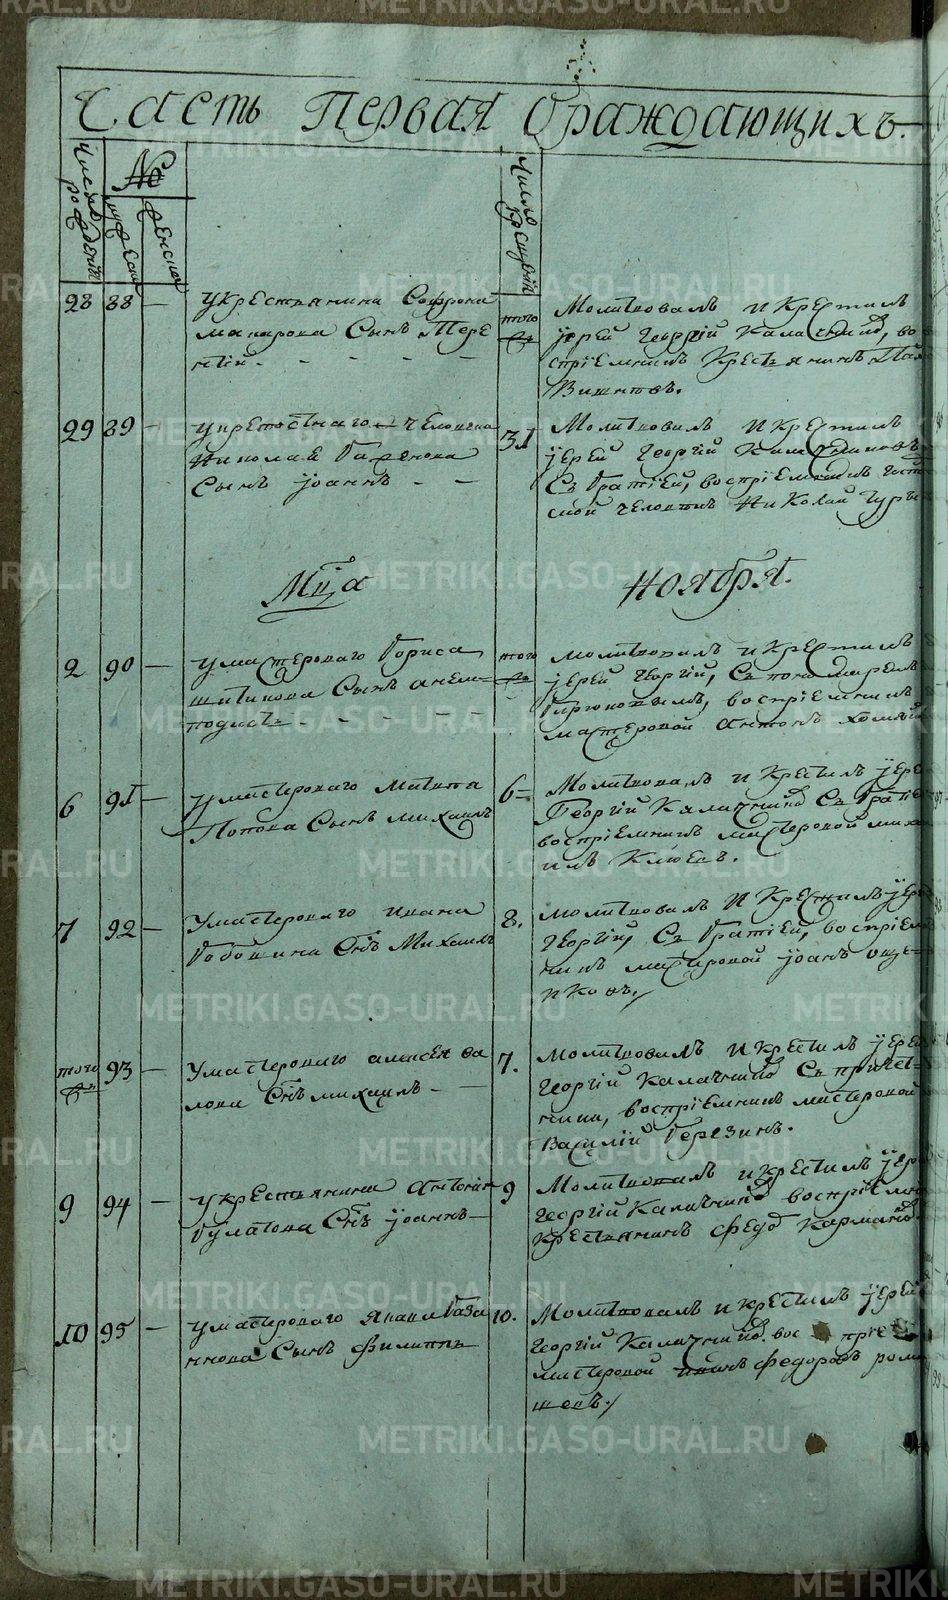 Часть Первая ѡ раждающихъ.
Число рожденій
№
мужеска
женска
Число крещеній
28 88 — У крестьянина Софрона
Макарова Сынъ Тере
нтій. - - - -
того ж
Молитвовалъ и Крестилъ
іерей Георгій Калачнико, во
спріемникъ Крестьянинъ
29 89 — У крепостнаго человека
Николая
Сынъ іоаннъ - -
31
Молитвовалъ и Крестилъ
іерей Георгій Калачниковъ
Съ братіей, воспріемникъ
человекъ Николай
Мца Ноября.
2 90 — У мастероваго Бориса
Сынъ
того ж
Молитвовалъ и Крестилъ
іерей Георгій, Съ пономаремъ
воспріемникъ
мастеровой Антонъ
6 91 — У мастероваго Никита
Попова Сынъ Михаилъ
6 -
Молитвовалъ и Крестилъ іере
Георгій Калачнико Съ брате
воспріемникъ мастеровой миха
илъ Клюевъ.
7 92 — У мастероваго Ивана
Бабошина Снъ Михаилъ
8.
Молитвовалъ и Крестилъ іере
Георгій, Съ братіей, воспріем
никъ мастеровой іоанъ още
пковъ./
того ж 93 — У мастероваго алексея
Снъ михаилъ — —
7.
Молитвовалъ и Крестилъ іерей
Георгій Калачнико Съ причет-
ники, воспріемникъ мастеровой
Василій Березинъ.
9 94 — У крестьянина
Булатова Снъ іоаннъ —
9
Молитвовалъ и крестилъ іере
Георгій Калачнико воспріемни
Крестьянинъ федо Кармано
10 95 — У мастероваго
Сынъ филиппъ
10.
Молитвовалъ и крестилъ іерей
Георгій Калачнико. вос пріе
мастеровой федоръ рома
шевъ./
METRIKI.GASO-URAL.RU